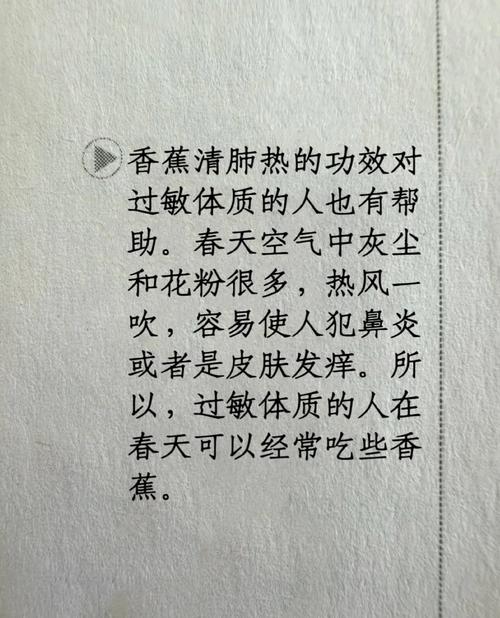 香蕉清肺热的功效对
过敏体质的人也有帮
助。春天空气中灰尘
和花粉很多，热风一
吹，容易使人犯鼻炎
或者是皮肤发痒。所
以，过敏体质的人在
春天可以经常吃些香
蕉。